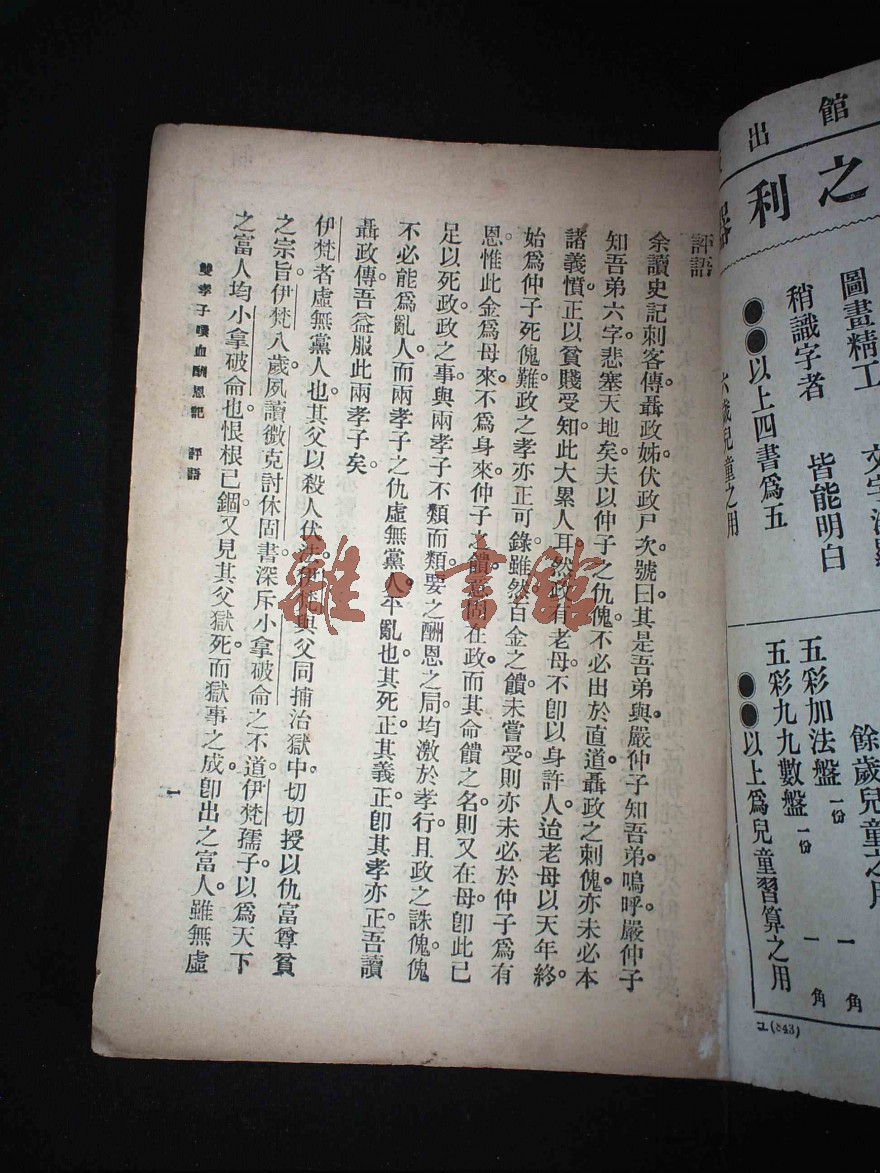 評語
余讀史記刺客傳聶政姊伏政尸次號曰其是吾弟與嚴仲子知吾弟。嗚呼嚴仲子
知吾弟六字悲塞天地矣夫以仲子之仇傀不必出於直道聶政之刺傀亦未必本
諸義憤正以貧賤受知此大累人耳然政有老母不卽以身許人迨老母以天年終。
始爲仲子死傀難政之孝亦正可錄雖然百金之饋未嘗受則亦未必於仲子爲有
恩惟此金爲母來不爲身來仲子之饋意固在政而其命饋之名則又在母卽此已
足以死政政之事與兩孝子不類而類要之酬恩之局均激於孝行且政之誅傀傀
不必能爲亂人而兩孝子之仇虛無黨人平亂也其死正其義正卽其孝亦正吾讀
聶政傳吾益服此兩孝子矣
伊梵者虛無黨人也其父以殺人伏法伊梵與父同捕治獄中切切授以仇富尊貧
之宗旨。伊梵八歲夙讀微克討休固書深斥小拿破侖之不道伊梵孺子以爲天下
之富人均小拿破侖也恨根已錮又見其父獄死而獄事之成卽出之富人雖無虛
雙孝子噀血酬恩記 評語
一
館出
之利器
圖畫精工 文字淺
稍識字者 皆能明白
●●以上四書爲五
六歲兒童之用
餘歲兒童之用
五彩加法盤 一份 一角
五彩九九數盤 一份 一角
●●以上爲兒童習算之用
(543)
雜·書館